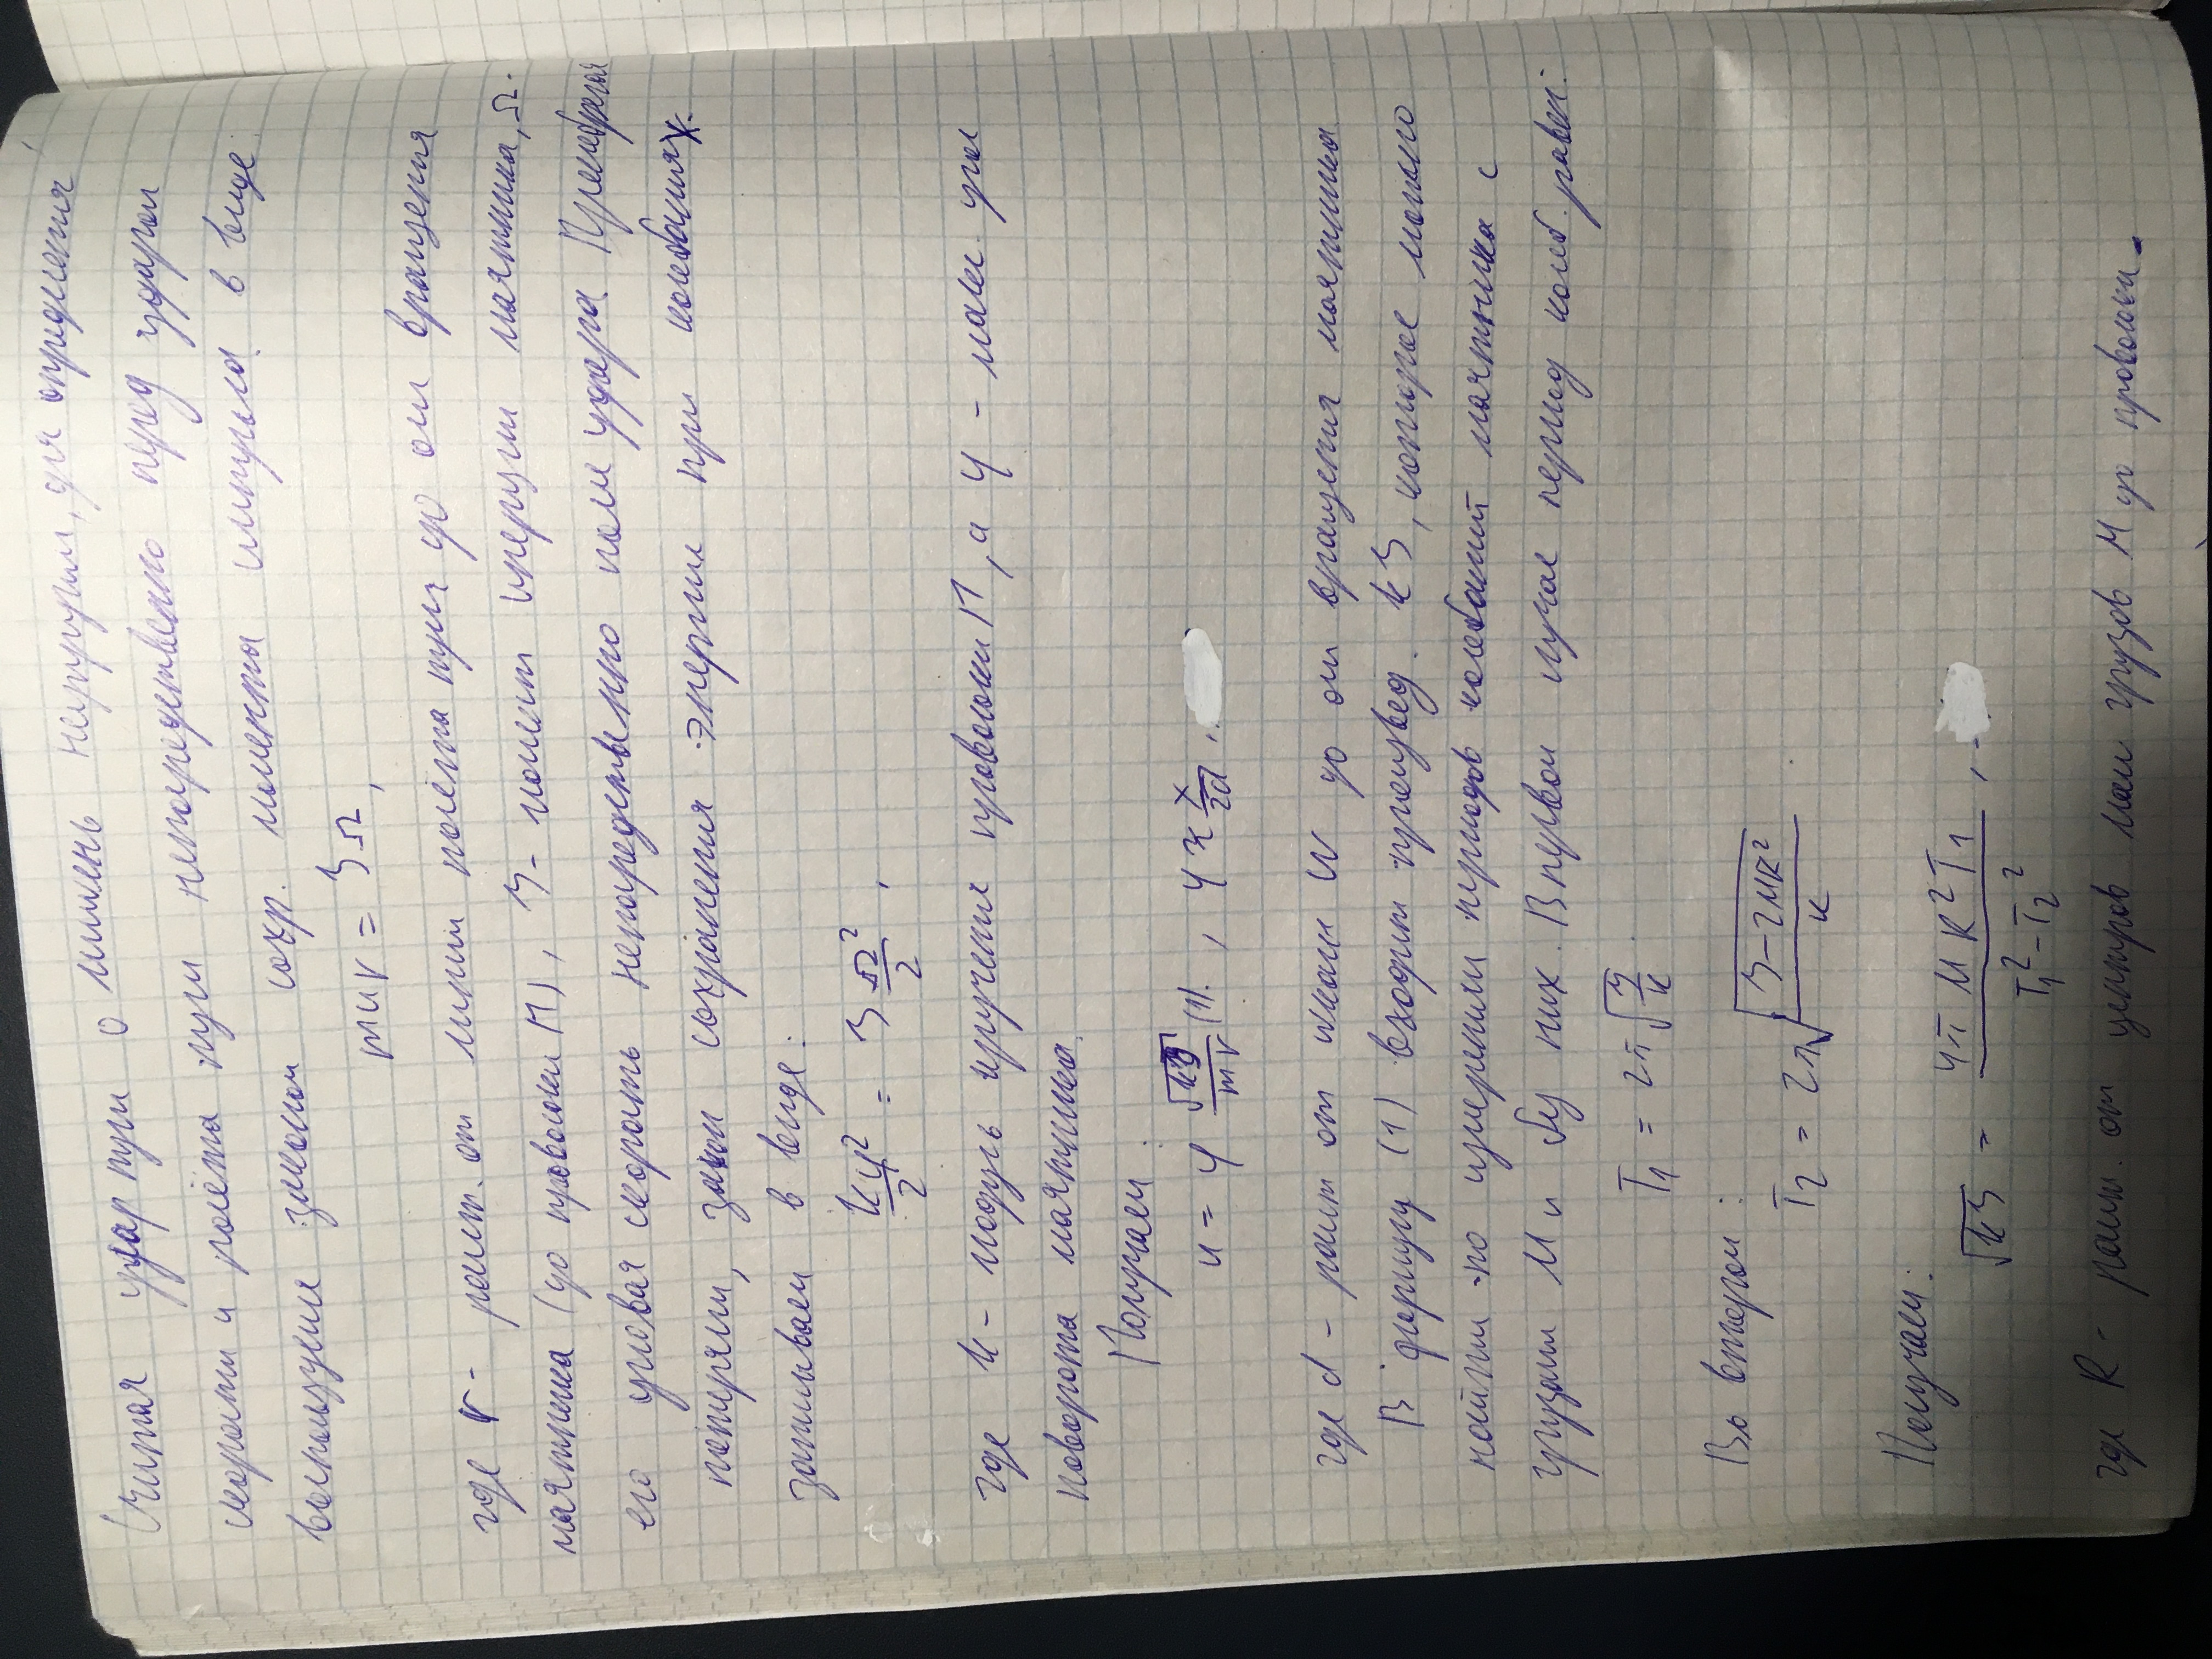 Считая удар пули о мишень неупругим, для определения
скорости u полёта пули непосредственно перед ударом
воспользуемся законом сохр. момента импульса в виде:
mur = IΩ,
где r - расст. от линии полёта пули до оси вращения
маятника (до проволоки П), I - момент инерции маятника, Ω -
его угловая скорость непосредственно после удара. Пренебрегая
потерями, закон сохранения энергии при колебаниях
записываем в виде:
kφ²/2 = I Ω²/2,
где k - модуль кручения проволоки П, а φ - макс. угол
поворота маятника.
Получаем:
u = φ √(kI)/(mr) (1). , φ ≈ x/2d,
где d - расст от шкалы Ш до оси вращения маятника.
В формулу (1) входит произвед. kI, которое можно
найти по измерениям периодов колебаний маятника с
грузами M и без них. В первом случае период колеб. равен:
T₁ = 2π√(I/k)
Во втором:
T₂ = 2π√((I-2MR²)/k)
Получаем:
√(kI) = 4πMR²T₁/(T₁²-T₂²),
где R - расст. от центров масс грузов M до проволоки.